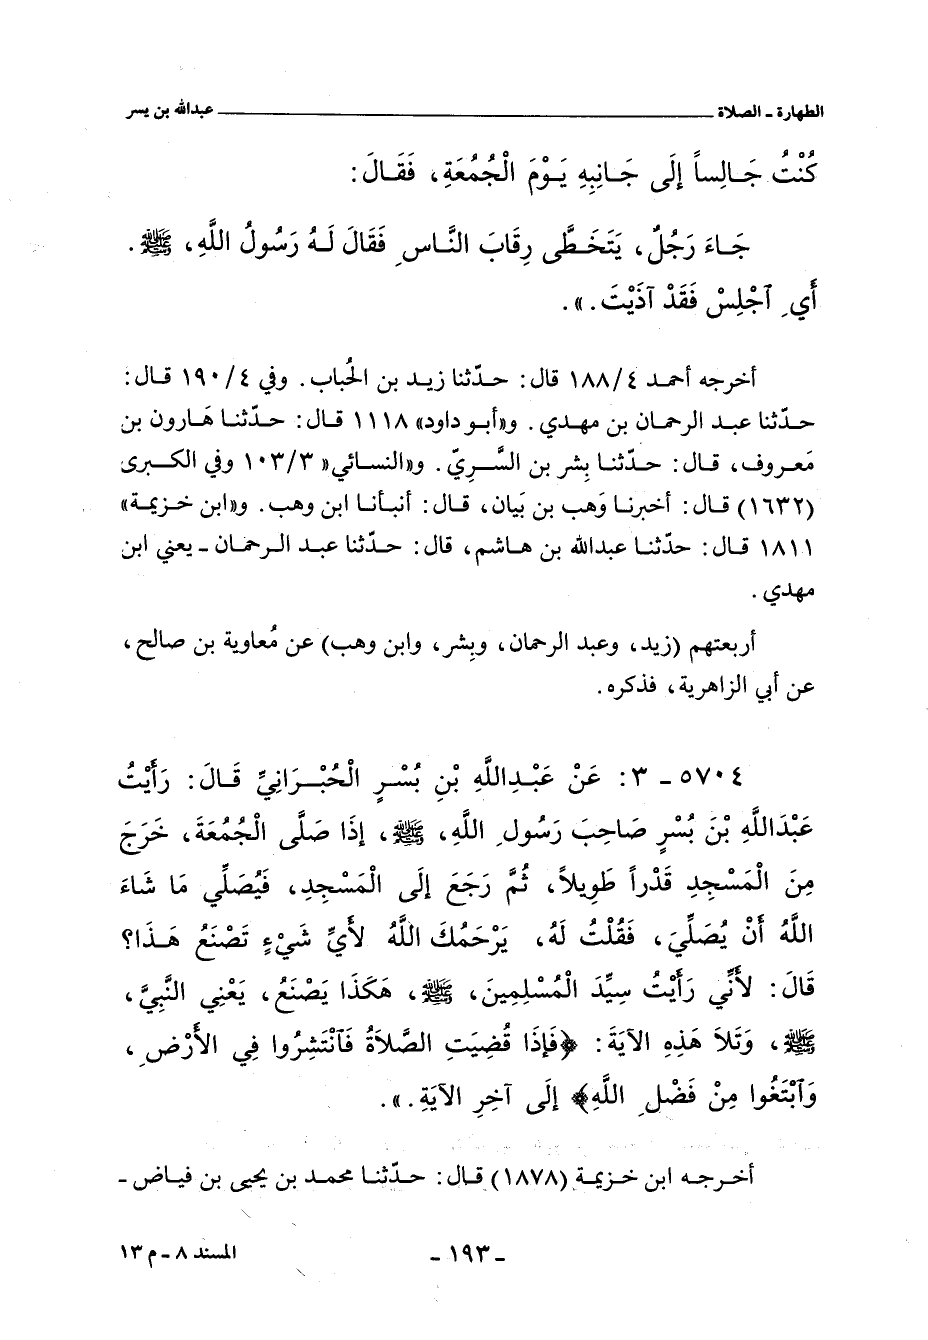 الطهارة ـ الصلاة ــــــ عبدالله بن يسر
كُنْتُ جَالِساً إِلَى جَانِبِهِ يَوْمَ الْجُمُعَةِ، فَقَالَ:
جَاءَ رَجُلٌ، يَتَخَطَّى رِقَابَ النَّاسِ فَقَالَ لَهُ رَسُولُ اللَّهِ، ﷺ.
أَيِ ٱجْلِسْ فَقَدْ آذَيْتَ.».
أخرجه أحمد ١٨٨/٤ قال: حدّثنا زيد بن الحُباب. وفي ١٩٠/٤ قال:
حدّثنا عبد الرحمان بن مهدي. و«أبو داود» ١١١٨ قال: حدّثنا هَارون بن
مَعروف، قال: حدّثنا بِشر بن السَّرِيّ. و«النسائي» ١٠٣/٣ وفي الكبرى
(١٦٣٢) قال: أخبرنا وَهب بن بَيان، قال: أنبأنا ابن وهب. و«ابن خزيمة»
١٨١١ قال: حدّثنا عبدالله بن هاشم، قال: حدّثنا عبد الرحمان ـ يعني ابن
مهدي.
أربعتهم (زيد، وعبد الرحمان، وبِشر، وابن وهب) عن مُعاوية بن صالح،
عن أبي الزاهرية، فذكره.
٥٧٠٤ ـ ٣: عَنْ عَبْدِاللَّهِ بْنِ بُسْرٍ الْحُبْرَانِيِّ قَالَ: رَأَيْتُ
عَبْدَاللَّهِ بْنَ بُسْرٍ صَاحِبَ رَسُولِ اللَّهِ، ﷺ، إِذَا صَلَّى الْجُمُعَةَ، خَرَجَ
مِنَ الْمَسْجِدِ قَدْراً طَوِيلاً، ثُمَّ رَجَعَ إِلَى الْمَسْجِدِ، فَيُصَلِّي مَا شَاءَ
اللَّهُ أَنْ يُصَلِّيَ، فَقُلْتُ لَهُ، يَرْحَمُكَ اللَّهُ لأَيِّ شَيْءٍ تَصْنَعُ هَذَا؟
قَالَ: لأَنِّي رَأَيْتُ سَيِّدَ الْمُسْلِمِينَ، ﷺ، هَكَذَا يَصْنَعُ، يَعْنِي النَّبِيَّ،
ﷺ، وَتَلاَ هَذِهِ الآيَةَ: ﴿فَإِذَا قُضِيَتِ الصَّلاَةُ فَٱنْتَشِرُوا فِي الأَرْضِ،
وَٱبْتَغُوا مِنْ فَضْلِ اللَّهِ﴾ إِلَى آخِرِ الآيَةِ.».
أخرجه ابن خزيمة (١٨٧٨) قال: حدّثنا محمد بن يحيى بن فياض ـ
ـ ١٩٣ ـ
المسند ٨ ـ م ١٣